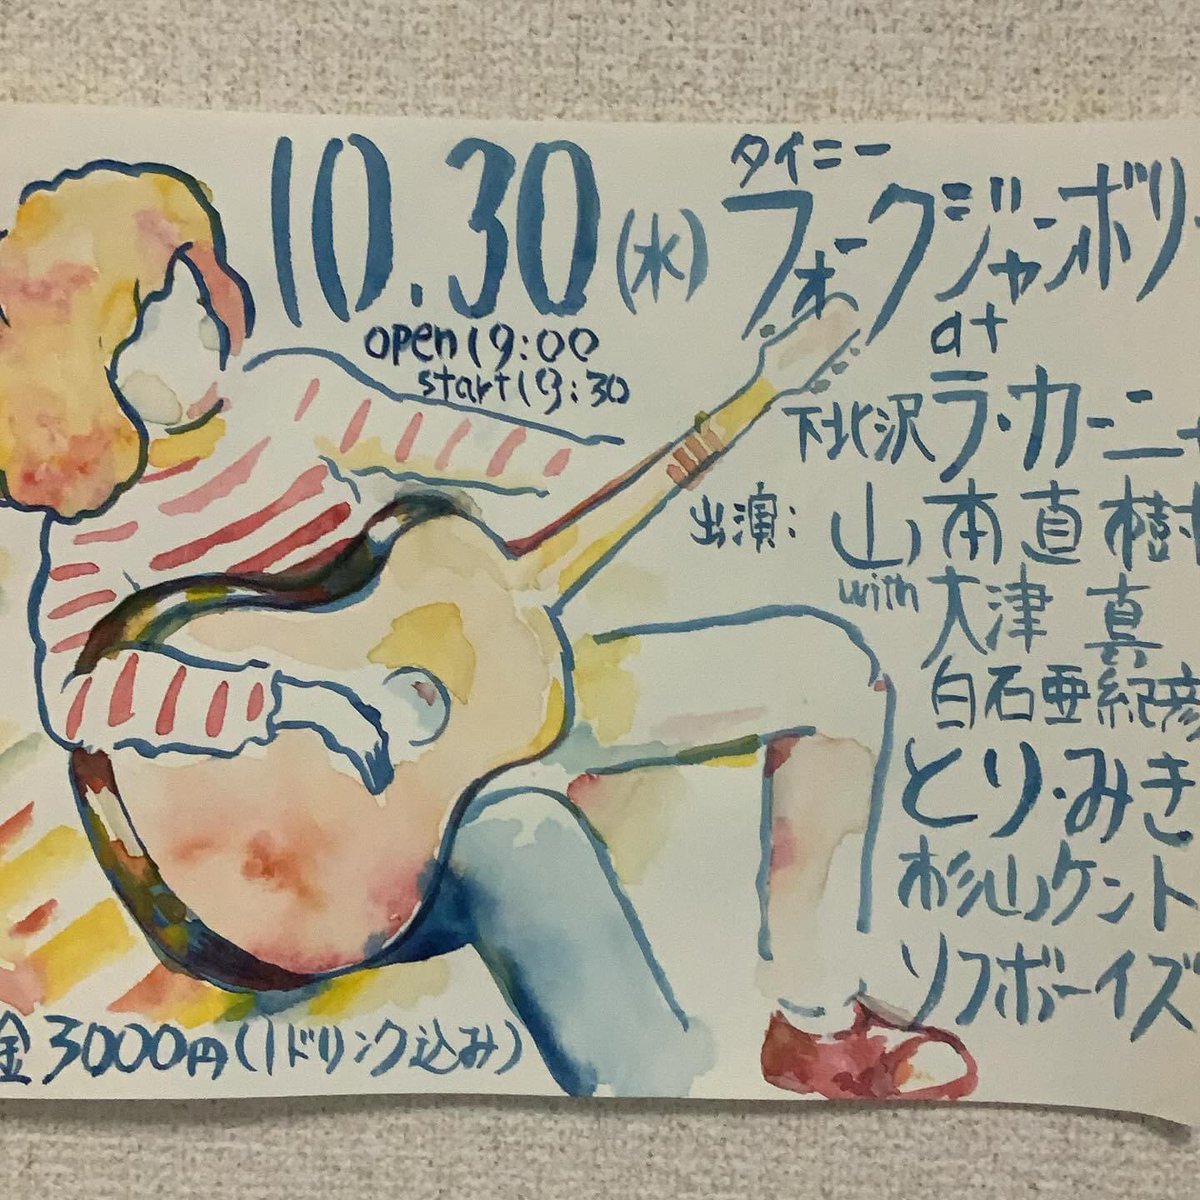 10.30(水)
open 19:00
start 19:30
タイニー
フォークジャンボリー
at
下北沢ラ・カーニャ
出演: 山本直樹
with 大津 真
白石亜紀彦
とり・みき
杉山ケント
ソフボーイズ
金3000円(1ドリンク込み)